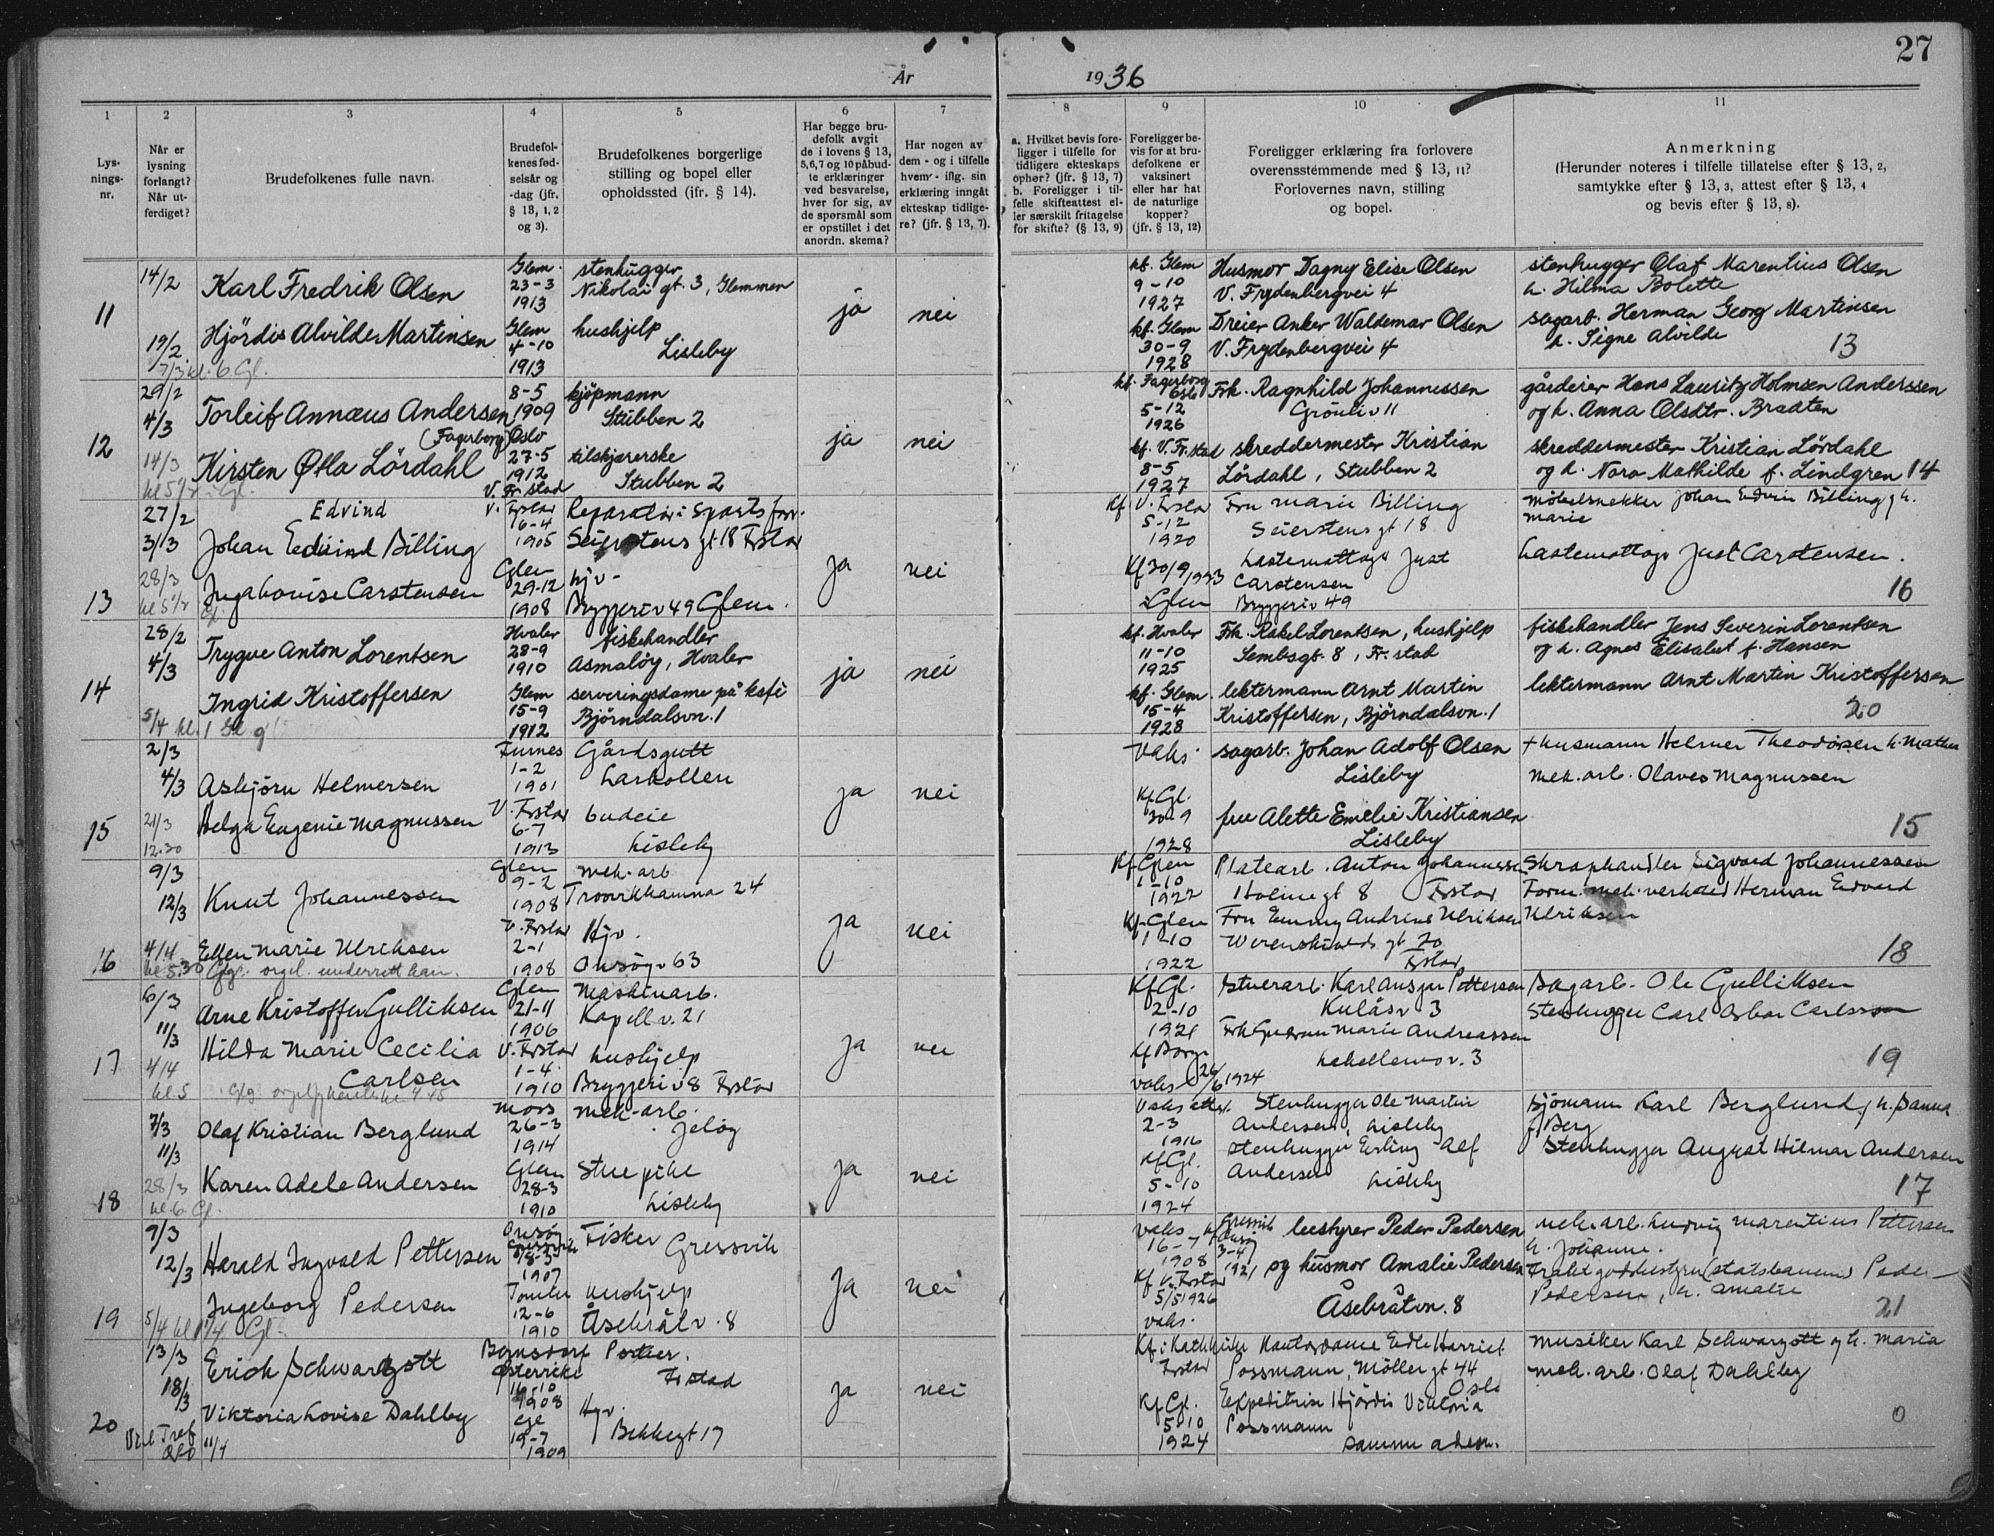 27
År 1936
1 2 3 4 5 6 7 8 9 10 11
Lysningsnr.
Når er lysning forlangt? Når utferdiget?
Brudefolkenes fulle navn.
Brudefolkenes fødselsår og -dag (jfr. § 13, 1, 2 og 3).
Brudefolkenes borgerlige stilling og bopel eller opholdssted (ifr. § 14).
Har begge brudefolk avgit de i lovens § 13, 5, 6, 7 og 10 påbudte erklæringer ved besvarelse, hver for sig, av de spørsmål som er opstillet i det anordn. skema?
Har nogen av dem - og i tilfelle hvem - iflg. sin erklæring inngåt ekteskap tidligere? (jfr. § 13, 7).
a. Hvilket bevis foreligger i tilfelle for tidligere ekteskaps ophør? (jfr. § 13, 7) b. Foreligger i tilfelle skifteattest eller særskilt fritagelse for skifte? (§ 13, 9)
Foreligger bevis for at brudefolkene er vaksinert eller har hat de naturlige kopper? (jfr. § 13, 12)
Foreligger erklæring fra forlovere overensstemmende med § 13, 11? Forlovernes navn, stilling og bopel.
Anmerkning (Herunder noteres i tilfelle tillatelse efter § 13, 2, samtykke efter § 13, 3, attest efter § 13, 4 og bevis efter § 13, 8).
11
14/2 Karl Fredrik Olsen Glem. 23-3 1913 stenhugger Nikolai gt. 3, Glemmen
19/2 Hjördis Alvilde Martinsen Glem 4-10 1913 hushjelp Lisleby
7/3 kl. 6 Gl.
ja nei
kf. Glem 9-10 1927 Husmor Dagny Elise Olsen V. Frydenbergvei 4
kf. Glem 30-9 1928 Dreier Anker Waldemar Olsen V. Frydenbergvei 4
stenhugger Olaf Marentius Olsen h. Hilma Bolette
sagarb. Herman Georg Martinsen h. Signe Alvilde 13
12
29/2 Torleif Annæus Andersen 8-5 1909 (Fagerborg) Oslo kjøpmann Stübben 2
4/3 Kirsten Østa Lördahl 27-5 1912 V. Fr.stad tilskjærerske Stubben 2
14/3 kl 5 1/2 i Gl.
ja nei
kf. Fagerborg Oslo 5-12 1926 Frk. Ragnhild Johannessen Grönliv 11
kf. V. Fr.stad 8-5 1927 skreddermester Kristian Lördahl, Stubben 2
gårdeier Hans Lauritz Holmsen Anderssen og h. Anna Olsdtr. Braaten
skreddermester Kristian Lördahl og h. Nora Mathilde f. Lindgren 14
13
27/2 Edvind Johan Edvind Billing V. Frstad 6-4 1905 Reparatør i Sportsforr. Seierstens gt 18 Frstad
3/3 Inga Lovise Carstensen Glem 29-12 1908 hjv- Bryggeriv 49 Glem.
28/3 kl 5 1/2 Gl.
ja nei
Kf. V. Frstad 5-12 1920 Fru Marie Billing Seierstens gt 18
Kf 30/9 1923 i Glem Lastemottags Just Carstensen Bryggeriv 49
møbelsnekker Johan Edvin Billing og h. Marie
Lastemottags Just Carstensen. 16
14
28/2 Trygve Anton Lorentsen Hvaler 28-9 1910 fiskehandler Asmaløy, Hvaler
4/3 Ingrid Kristoffersen Glem 15-9 1912 serveringsdame på kafé Björndalsvn. 1
5/4 kl. 1 Gl
ja nei
kf. Hvaler 11-10 1925 Frk. Rakel Lorentsen, hushjelp Sembsgt. 8, Fr.stad
kf. Glem. 15-4 1928 lektermann Arnt Martin Kristoffersen, Björndalsvn. 1
fiskehandler Jens Severin Lorentsen og h. Agnes Elisabet f. Hansen
lektermann Arnt Martin Kristoffersen 20
15
2/3 Asbjörn Helmersen Furnes 1-2 1901 Gårdsgutt Larkollen
4/3 Helga Eugenie Magnussen V. Frstad 6-7 1913 budeie Lisleby
21/3 12.30
ja nei
Vaks. sagarb. Johan Adolf Olsen Lisleby
Kf Gl. 30-9 1928 frue Alette Emelie Kristiansen Lisleby
+ husmann Helmer Theodorsen h. Mathea
mek. arb. Olaves Magnussen 15
16
9/3 Knut Johannessen Glem 9-2 1908 mek. arb Troovikhamna 24
12/3 Ellen Marie Ulriksen V. Frstad 2-1 1908 Hjv. Onsøyv 63
4/4 kl 5.30 orgel. underrett han.
ja nei
Kf Glem 1-10 1922 Platearb. Anton Johannessen Holmegt 8 Frstad
Kf. Glem 1-10 1922 Fru Emmy Andrine Ulriksen Werenskiolds gt 20 Frstad
Skraphandler Sigvard Johannessen
Form. mek. verksted Herman Edvard Ulriksen 18
17
6/3 Arne Kristoffer Gulliksen Glem 21-11 1906 maskinarb. Kapellv. 21
11/3 Hilda Marie Cecilia Carlsen V. Frstad 1-4 1910 hushjelp Bryggeriv 8 Frstad
4/4 kl. 5
ja nei
Kf Gl. 2-10 1921 Stuerarb. Karl Ansgar Pettersen Kulåsv 3
Kf Borge 26/6 1924 vaks Frk Gudrun Marie Andreassen Lahellemsv. 3
Sagarb. Ole Gulliksen
Stenhugger Carl Oskar Carlsson 19
18
7/3 Olaf Kristian Berglund Moss 26-3 1914 mek. arb. Jeløy
11/3 Karen Adele Andersen Glem 28-3 1910 Stuepike Lisleby
28/3 kl. 6 Gl.
ja nei
Vaks attst. 2-3 1916 Stenhugger Ole Martin Andersen, Lisleby
Kf Gl. 5-10 1924 stenhugger Erling Alf Andersen Lisleby
Sjömann Karl Berglund og h. Sanna f. Berg
Stenhugger August Hilmar Andersen 17
19
9/3 Harald Ingvald Pettersen Onsøy Gressvik 18-3 1907 Fisker Gressvik
12/3 Ingeborg Pedersen Tomter 12-6 1910 hushjelp Åsebråtv. 8
5/4 Gl.
ja nei
vaks 16-7 1908 Kf Gressvik Onsøy 3-4 1921 bestyrer Peder Pedersen
Kf V. Frstad 5/5 1926 vaks. og husmor Amalie Pedersen Åsebråtvn. 8
mek. arb. Ludvig Marentius Pettersen h. Johanne.
Fraktgodsbestyrer (statsbanene) Peder Pedersen, h. Amalie 21
20
13/3 Erich Schwarzott Bernsdorf Østerrike 16-10 1908 Portier. Frstad
18/3 Viktoria Lovise Dahlby 19-7 1909 Hjv. Bekkegt 17
Oslo 11/4
ja nei
Kf. i Kath. kirke Frstad Kontordame Edle Harriet Possmann, Möller gt 44 Oslo
Kf Gl. 5-10 1924 Ekspeditrise Hjördis Viktoria Possmann samme adr.
musiker Karl Schwarzott og h. Maria
mek. arb. Olaf Dahlby 0